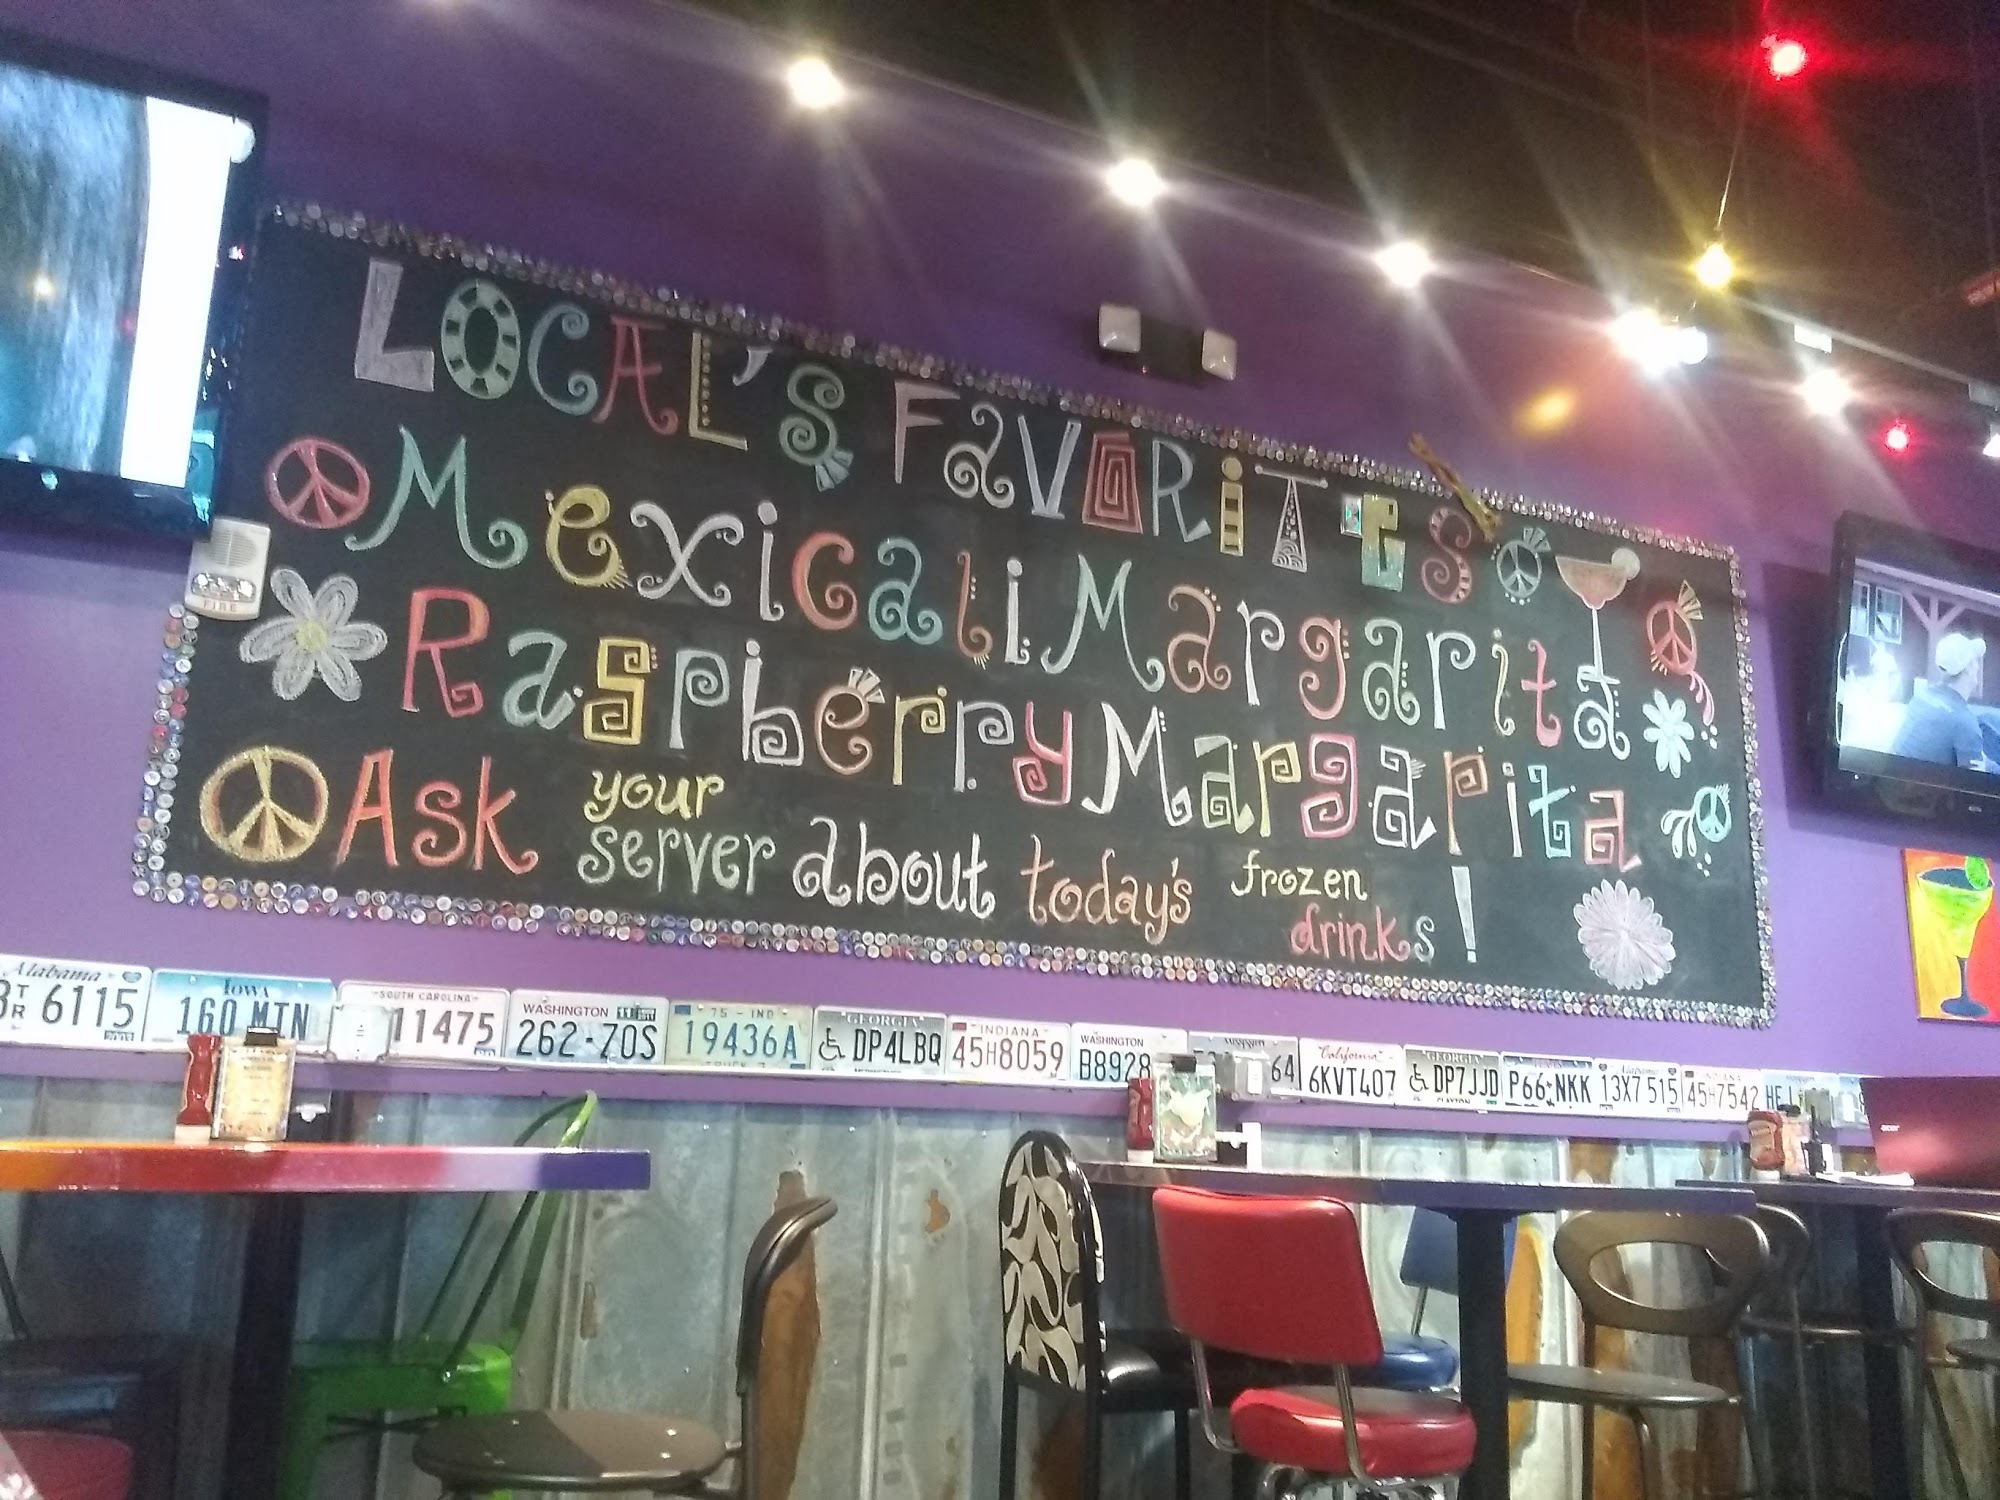 LOCAL'S FAVORITES
Mexicali Margarita
Raspberry Margarita
Ask your server about today's frozen drinks!
FIRE
Alabama
6115
2003
IOWA
160 MTN
SOUTH CAROLINA
11475
WASHINGTON
262-ZOS
75 - IND
19436A
GEORGIA
DP4LBQ
INDIANA
45H8059
WASHINGTON
B8928
64
California
6KVT407
GEORGIA
DP7JJD
CLAYTON
P66 NKK
Alabama
13X7 515
INDIANA
45H7542
acer